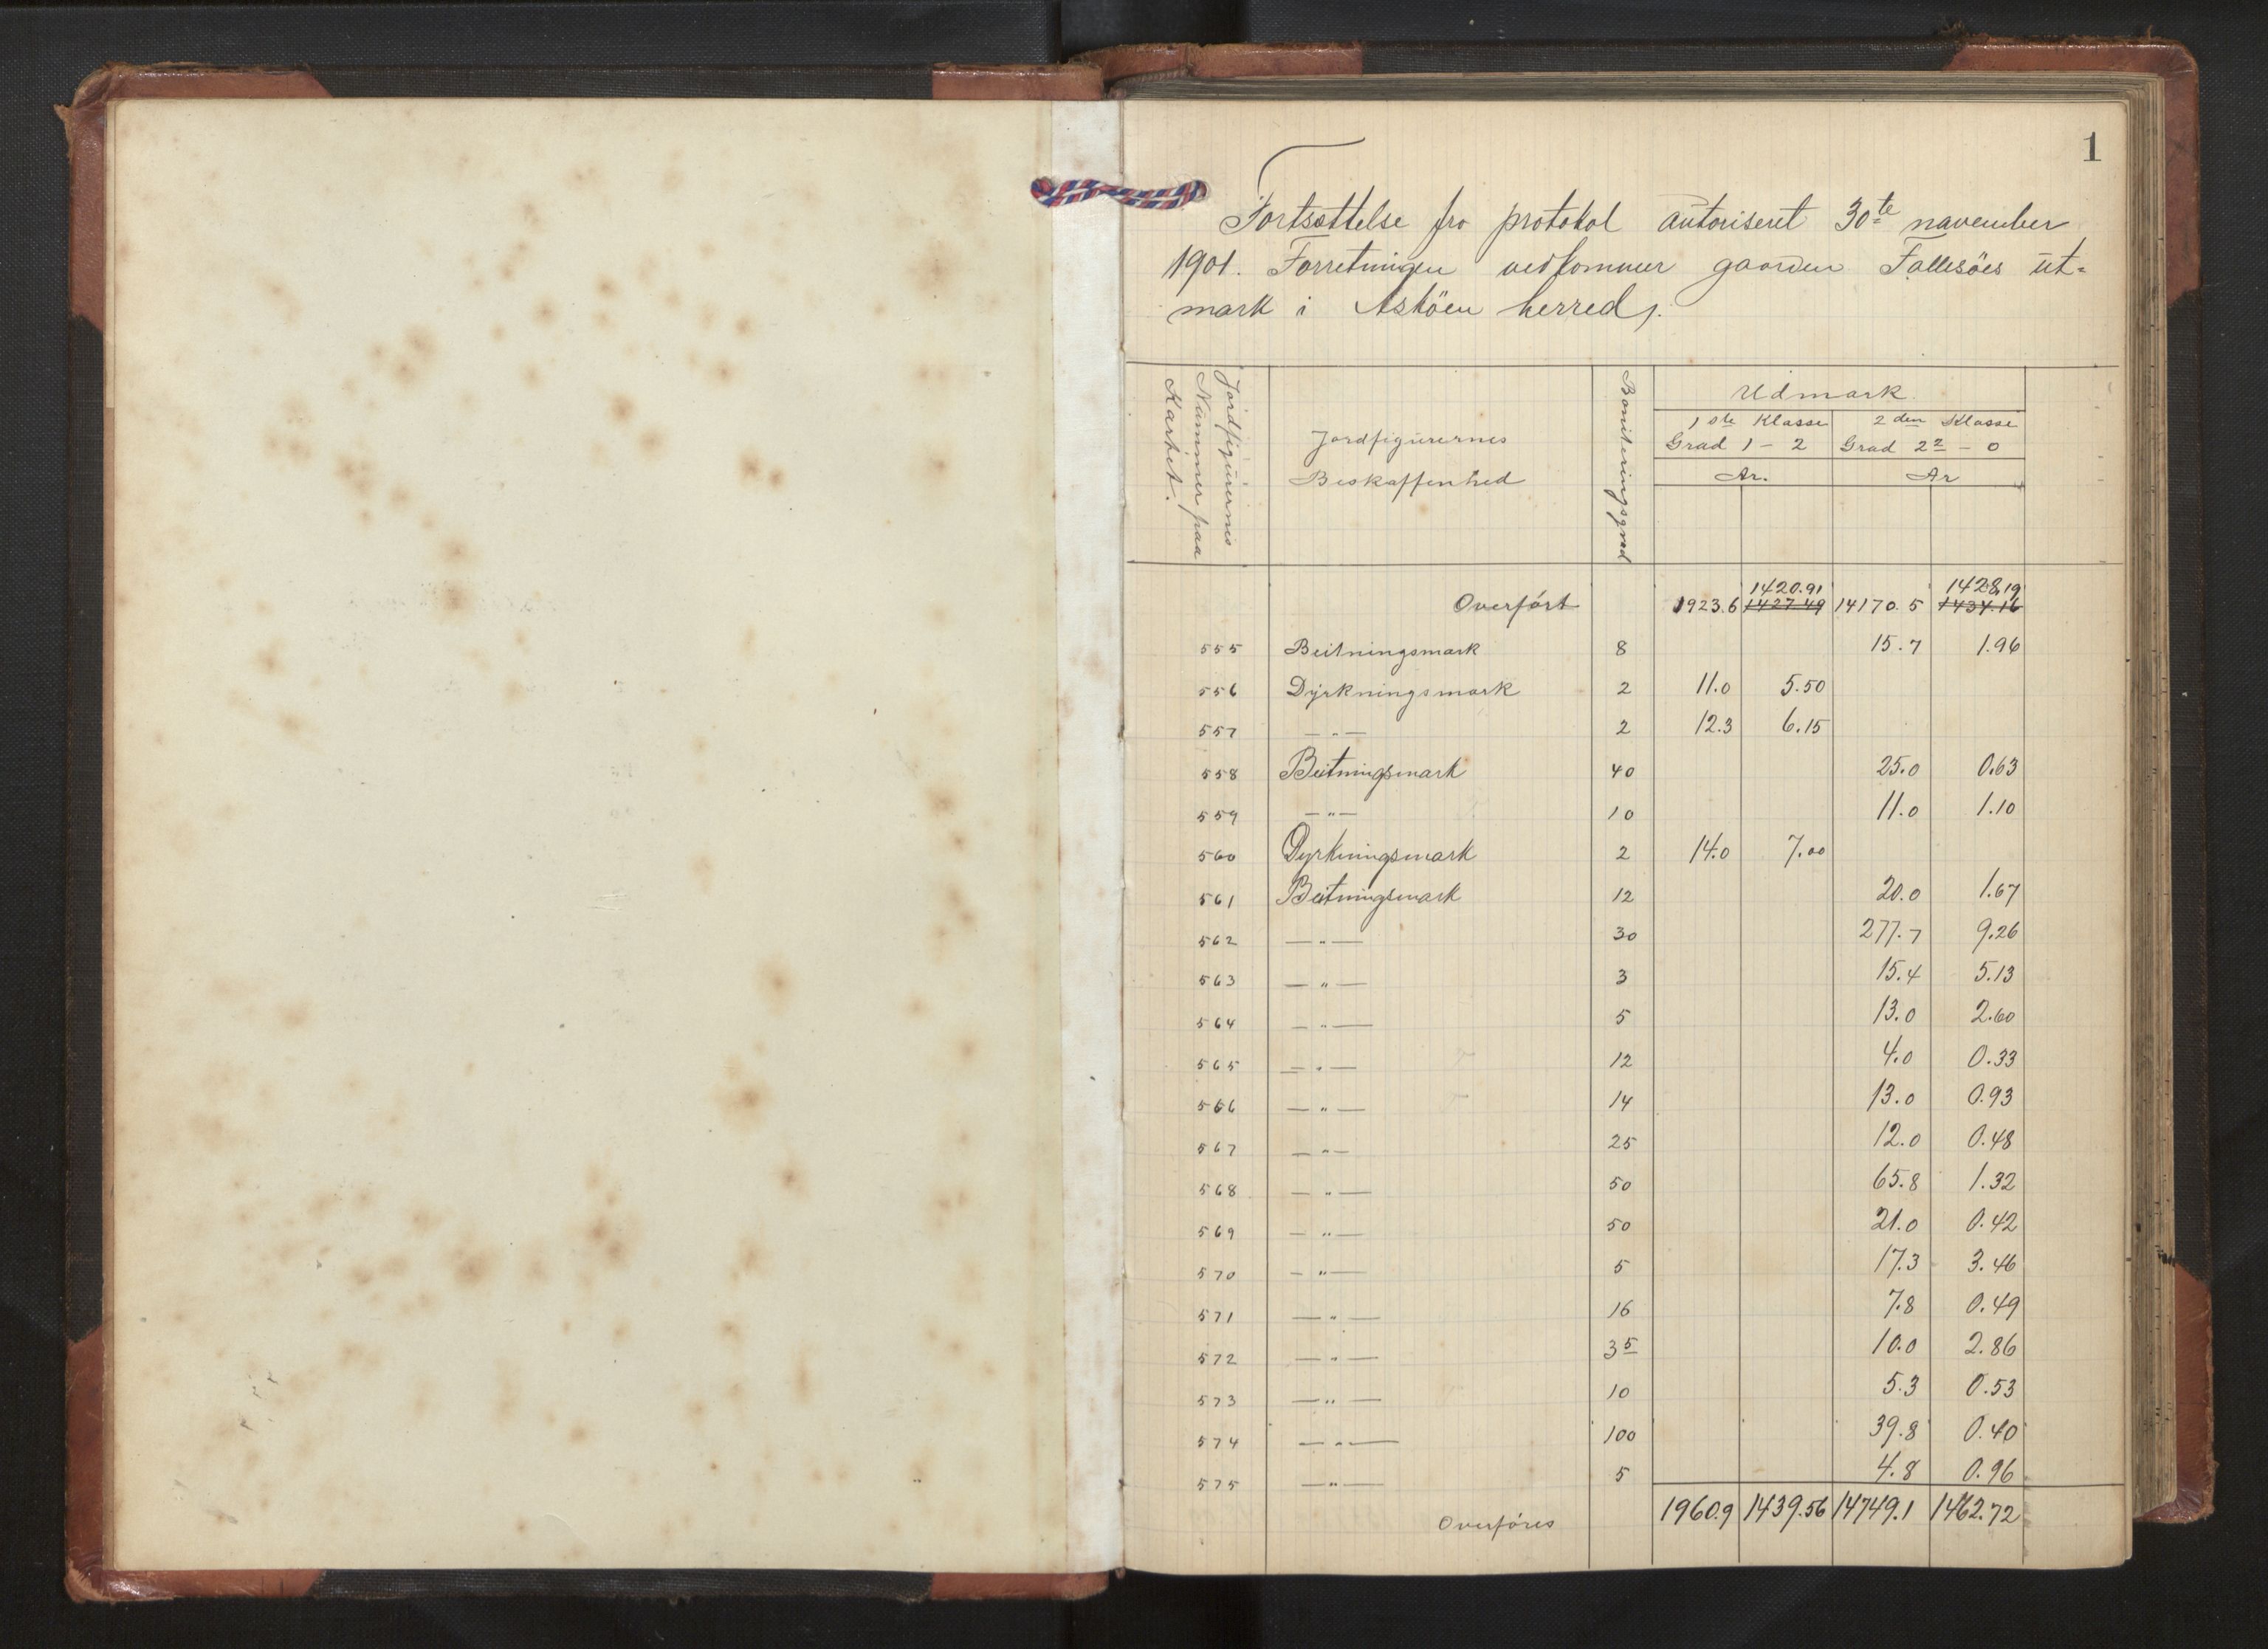 1
Fortsættelse fra protokol autoriseret 30te november
1901. Forretningen vedkommer gaarden Follesöes ut-
mark i Asköen herred.
Jordfigurernes Nummer paa Kartet.
Jordfigurernes Beskaffenhed
Boniteringsgrad
Udmark.
1ste Klasse 2den Klasse
Grad 1 - 2 Grad 2² - 0
Ar. Ar
1420.91 1428.19
Overført 1923.6 1427.49 14170.5 1434.16
555 Beitningsmark 8 15.7 1.96
556 Dyrkningsmark 2 11.0 5.50
557 — " — 2 12.3 6.15
558 Beitningsmark 40 25.0 0.63
559 — " — 10 11.0 1.10
560 Dyrkningsmark 2 14.0 7.00
561 Beitningsmark 12 20.0 1.67
562 — " — 30 277.7 9.26
563 — " — 3 15.4 5.13
564 — " — 5 13.0 2.60
565 — " — 12 4.0 0.33
566 — " — 14 13.0 0.93
567 — " — 25 12.0 0.48
568 — " — 50 65.8 1.32
569 — " — 50 21.0 0.42
570 — " — 5 17.3 3.46
571 — " — 16 7.8 0.49
572 — " — 3⁵ 10.0 2.86
573 — " — 10 5.3 0.53
574 — " — 100 39.8 0.40
575 — " — 5 4.8 0.96
Overføres 1960.9 1439.56 14749.1 1462.72